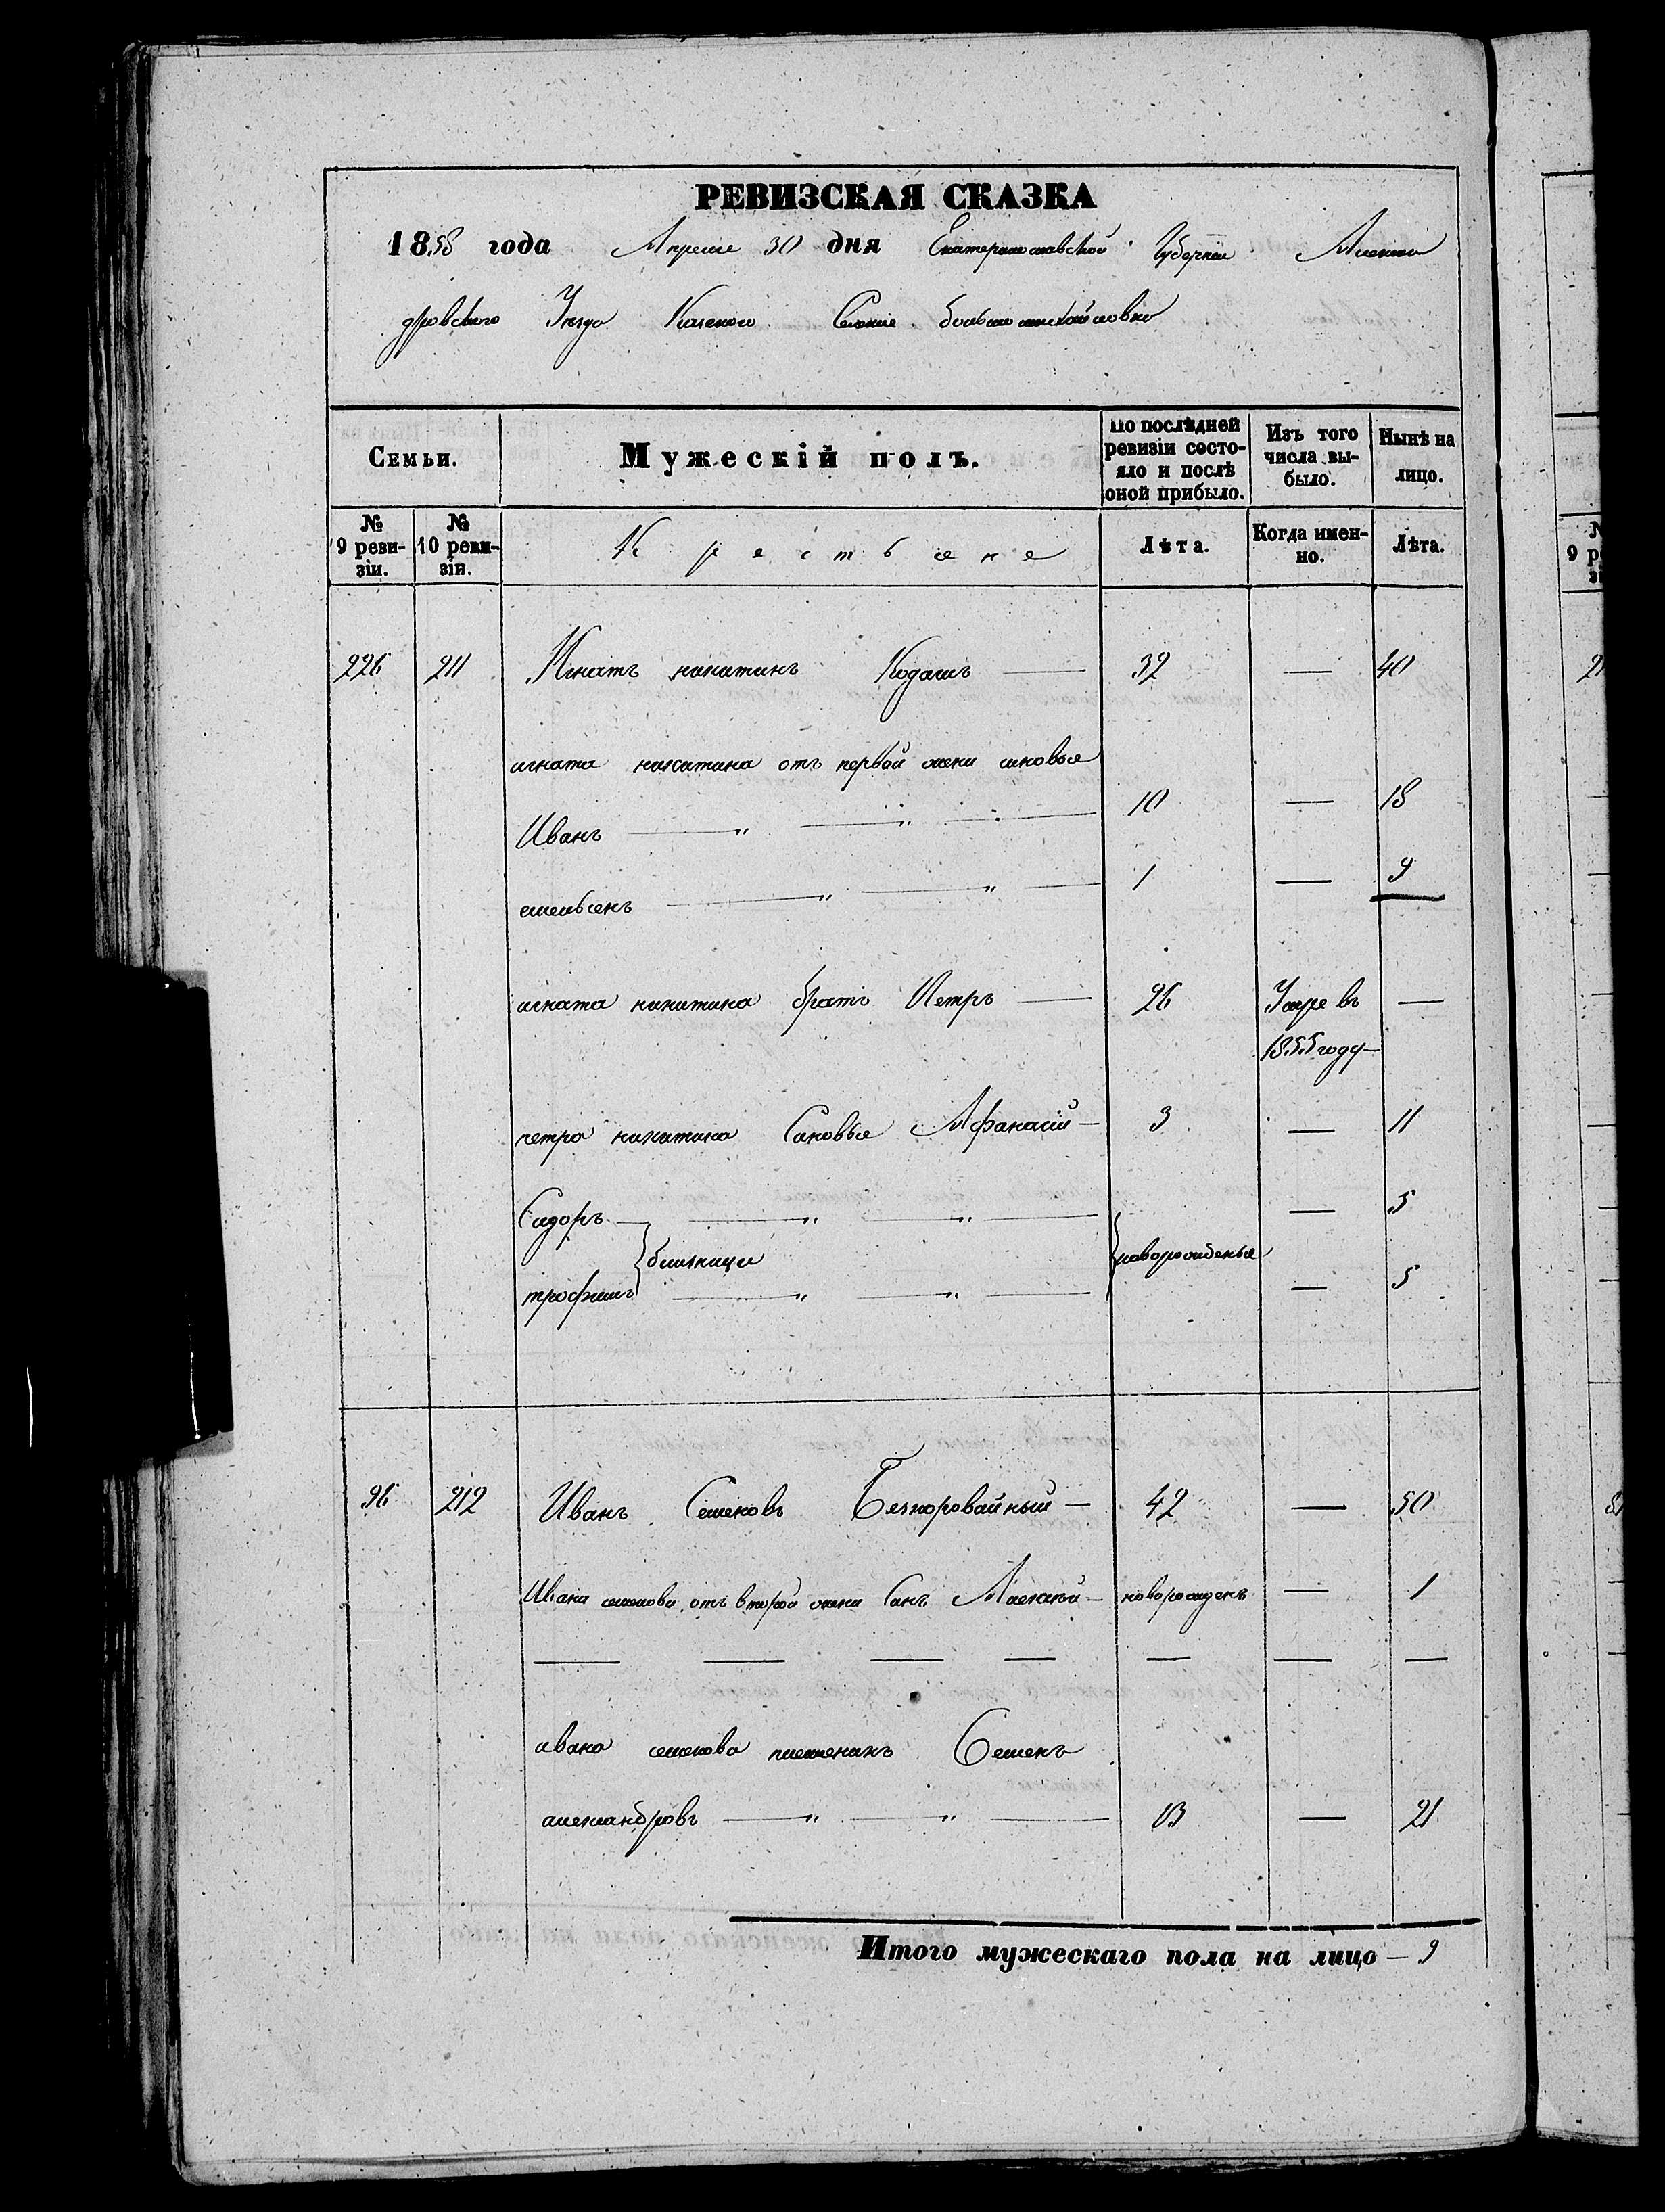 РЕВИЗСКАЯ СКАЗКА
1858 года Апреля 30 дня Екатеринославской Губернии Алексан
дровского Уезда Казеного Селение большомихайловки
Семьи.
Мужескій полъ.
По послѣдней ревизіи состояло и послѣ оной прибыло.
Изъ того числа выбыло.
Нынѣ на лицо.
№ 9 ревизіи.
№ 10 ревизіи.
Крестьяне
Лѣта.
Когда именно.
Лѣта.
226 211 Игнатъ никитинъ Кодашъ — 32 — 40
игната никитина отъ первой жени синовья
Иванъ — " — " — 10 — 18
емельенъ — " — " — 1 — 9
игната никитина братъ Петръ — 26 Умре въ —
1855 году —
петра никитина Сановья Афанасій — 3 — 11
Сидоръ — " — " — — 5
близнаци новорожденые
трофимъ — " — " — — 5
96 212 Иванъ Семеновъ Безкоровайный — 42 — 50
Ивана семенова отъ второй жени Санъ Алексѣй — новорожденъ — 1
— — — — — — —
ивана семенова племеникъ Семенъ
александровъ — " — " — 13 — 21
Итого мужескаго пола на лицо — 9